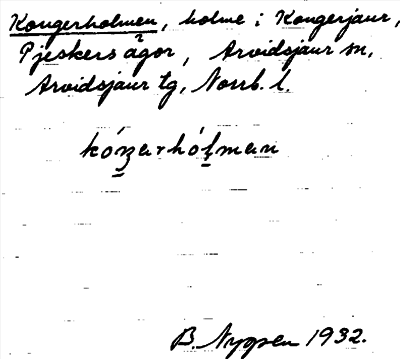 Kongerholmen, holme i Kongerjaur,
Pjeskers ägor, Arvidsjaur sn,
Arvidsjaur tg, Norrb. l.
B. Nygren 1932.